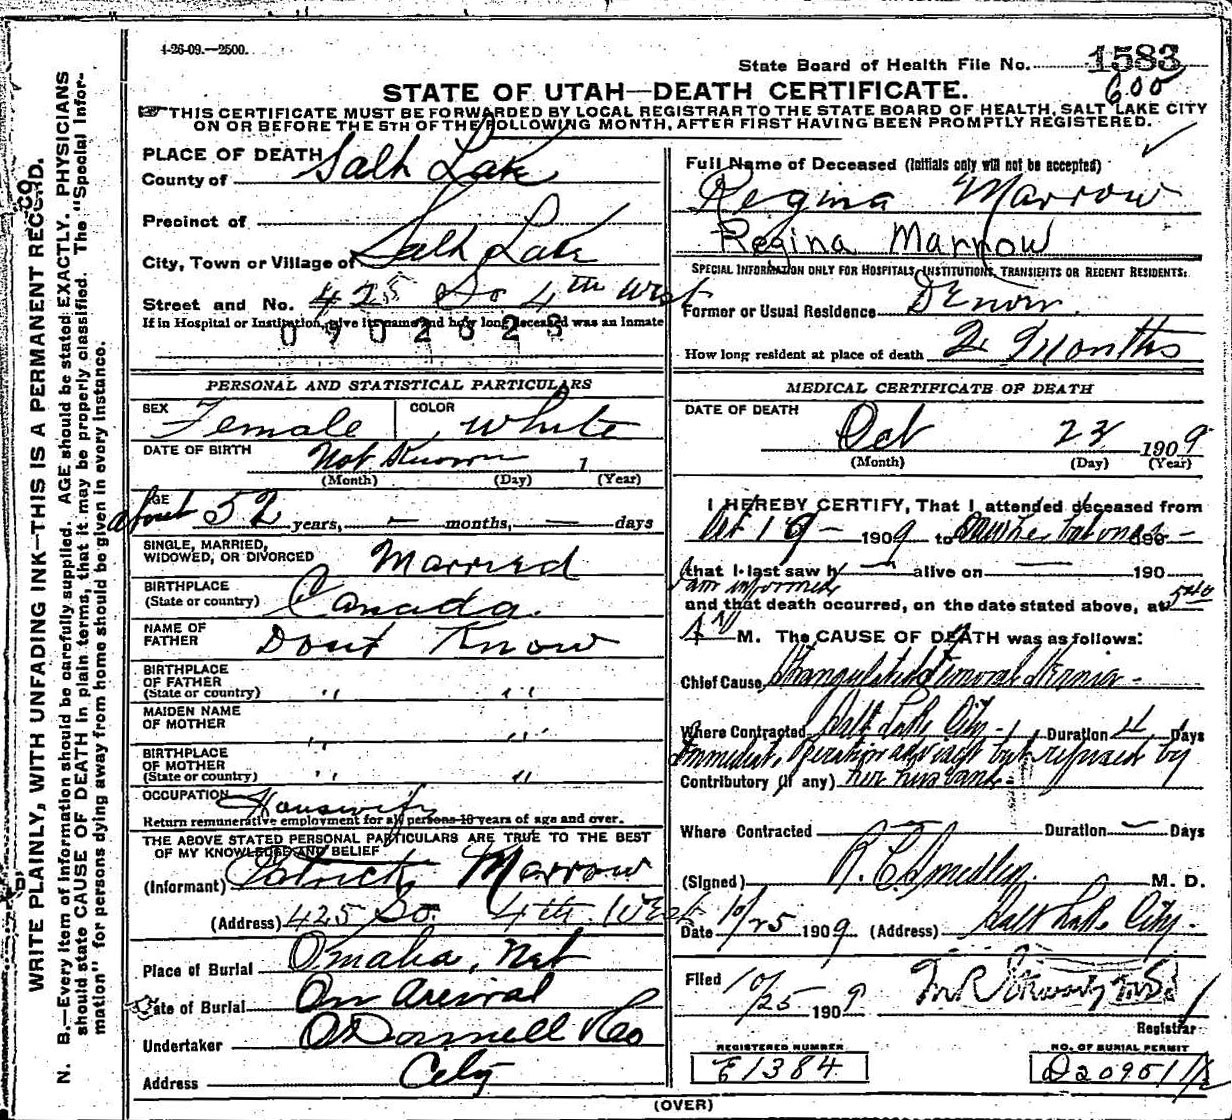 1-26-09.—2500.
State Board of Health File No. 1583
600
STATE OF UTAH—DEATH CERTIFICATE.
THIS CERTIFICATE MUST BE FORWARDED BY LOCAL REGISTRAR TO THE STATE BOARD OF HEALTH, SALT LAKE CITY
ON OR BEFORE THE 5TH OF THE FOLLOWING MONTH, AFTER FIRST HAVING BEEN PROMPTLY REGISTERED.
WRITE PLAINLY, WITH UNFADING INK—THIS IS A PERMANENT RECORD.
N. B.—Every item of information should be carefully supplied. AGE should be stated EXACTLY. PHYSICIANS
should state CAUSE OF DEATH in plain terms, that it may be properly classified. The "Special Infor-
mation" for persons dying away from home should be given in every instance.
PLACE OF DEATH
County of Salt Lake
Precinct of
City, Town or Village of Salt Lake
Street and No. 425 So 4th West
If in Hospital or Institution, give its name and how long deceased was an Inmate
0702623
PERSONAL AND STATISTICAL PARTICULARS
SEX Female COLOR White
DATE OF BIRTH Not Known 1
(Month) (Day) (Year)
AGE about 52 years, — months, — days
SINGLE, MARRIED,
WIDOWED, OR DIVORCED Married
BIRTHPLACE
(State or country) Canada.
NAME OF
FATHER Dont Know
BIRTHPLACE
OF FATHER
(State or country) " "
MAIDEN NAME
OF MOTHER " "
BIRTHPLACE
OF MOTHER
(State or country) " "
OCCUPATION Housewife
Return remunerative employment for all persons 10 years of age and over.
THE ABOVE STATED PERSONAL PARTICULARS ARE TRUE TO THE BEST
OF MY KNOWLEDGE AND BELIEF
(Informant) Patrick Marrow
(Address) 425 So. 4th. West
Place of Burial Omaha, Neb
Date of Burial On Arrival
Undertaker O'Donnell & Co
Address City
Full Name of Deceased (Initials only will not be accepted)
Regina Marrow
Regina Marrow
SPECIAL INFORMATION ONLY FOR HOSPITALS, INSTITUTIONS, TRANSIENTS OR RECENT RESIDENTS:
Former or Usual Residence Denver.
How long resident at place of death 2 Months
MEDICAL CERTIFICATE OF DEATH
DATE OF DEATH
Oct 23 1909
(Month) (Day) (Year)
I HEREBY CERTIFY, That I attended deceased from
Oct 19 — 1909 to saw her but once 190 —
that I last saw h — alive on — 190
am informed
and that death occurred, on the date stated above, at 5:40
A M. The CAUSE OF DEATH was as follows:
Chief Cause Strangulated Femoral Hernia -
Where Contracted Salt Lake City - Duration 4 Days
Immediate operation advised but refused by
Contributory (if any) her husband -
Where Contracted — Duration — Days
(Signed) M. D.
Date 10/25 1909 (Address) Salt Lake City.
Filed 10/25 1909
Registrar
REGISTERED NUMBER
E1384
NO. OF BURIAL PERMIT
(OVER)